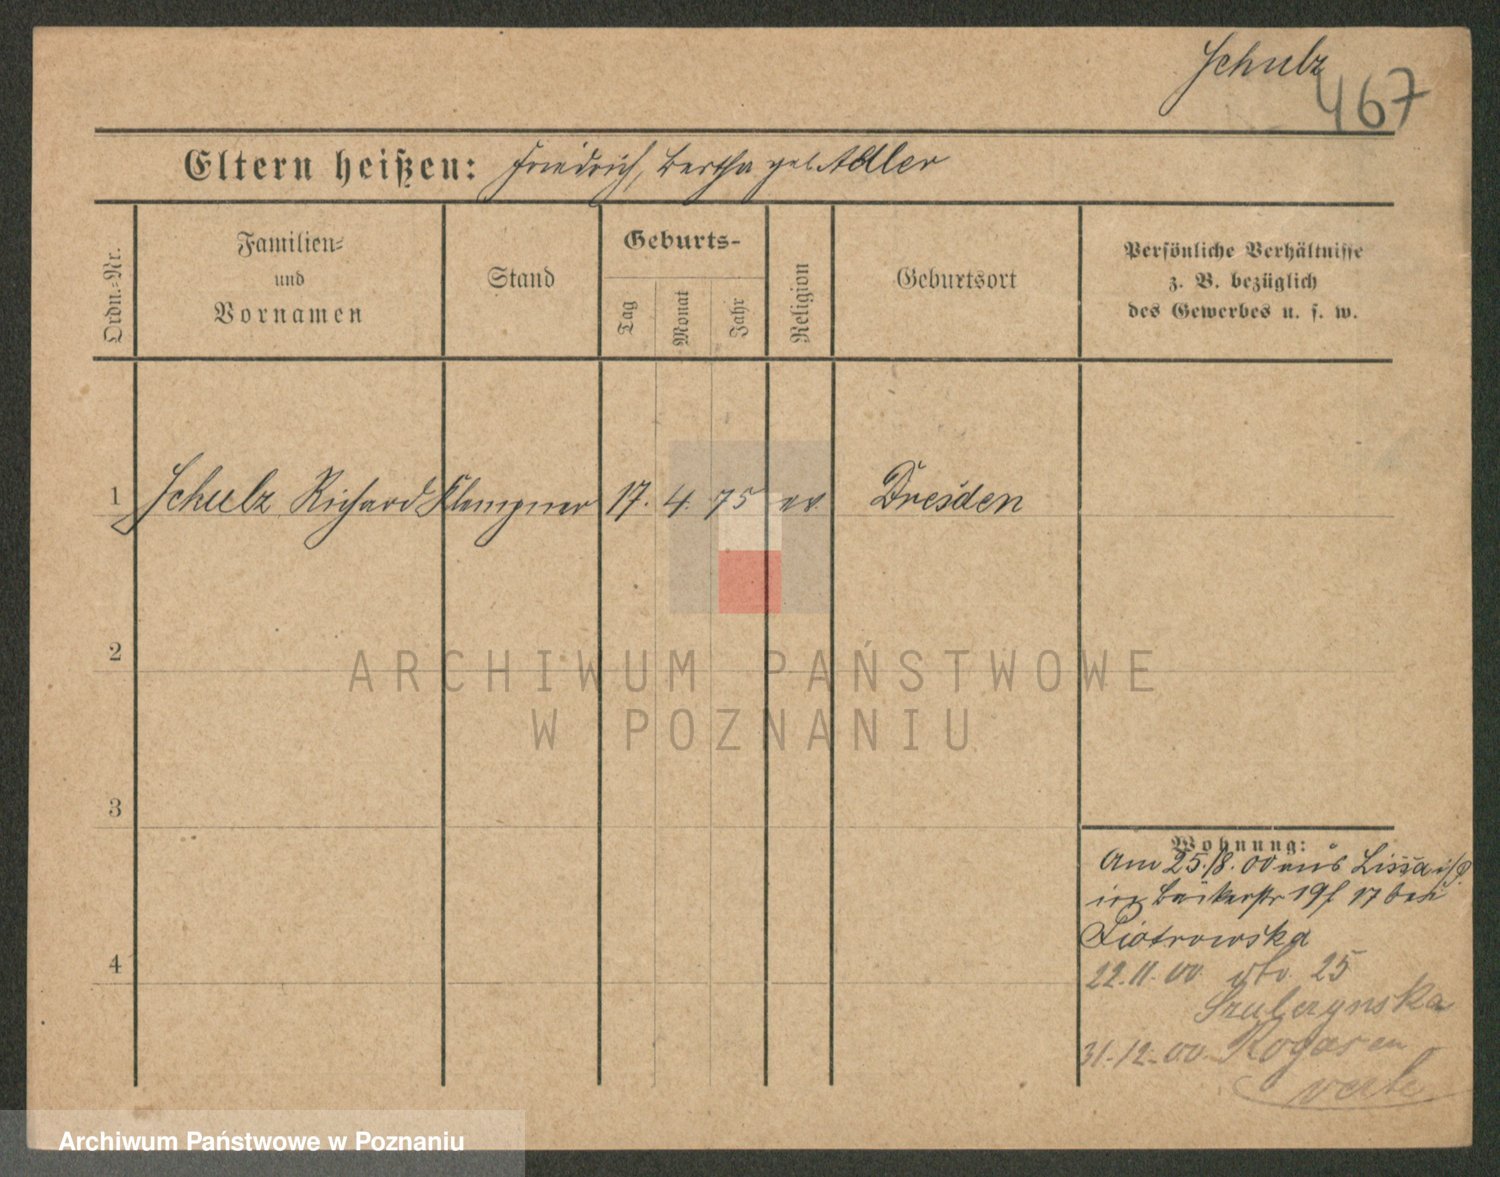 Schulz
467
Eltern heißen: Friedrich, Bertha geb. Adler
Ordn.-Nr.
Familien-
und
Vornamen
Stand
Geburts-
Tag
Monat
Jahr
Religion
Geburtsort
Persönliche Verhältnisse
z. B. bezüglich
des Gewerbes u. s. w.
1 Schulz Richard Klempner 17. 4. 75 ev Dresden
2
3
4
Wohnung:
Am 25./8. 00 aus Lissa i/P.
Bäckerstr 17 bei
Piotrowska
22.11.00 25
31.12.00 Rogasen
ARCHIWUM PAŃSTWOWE
W POZNANIU
Archiwum Państwowe w Poznaniu